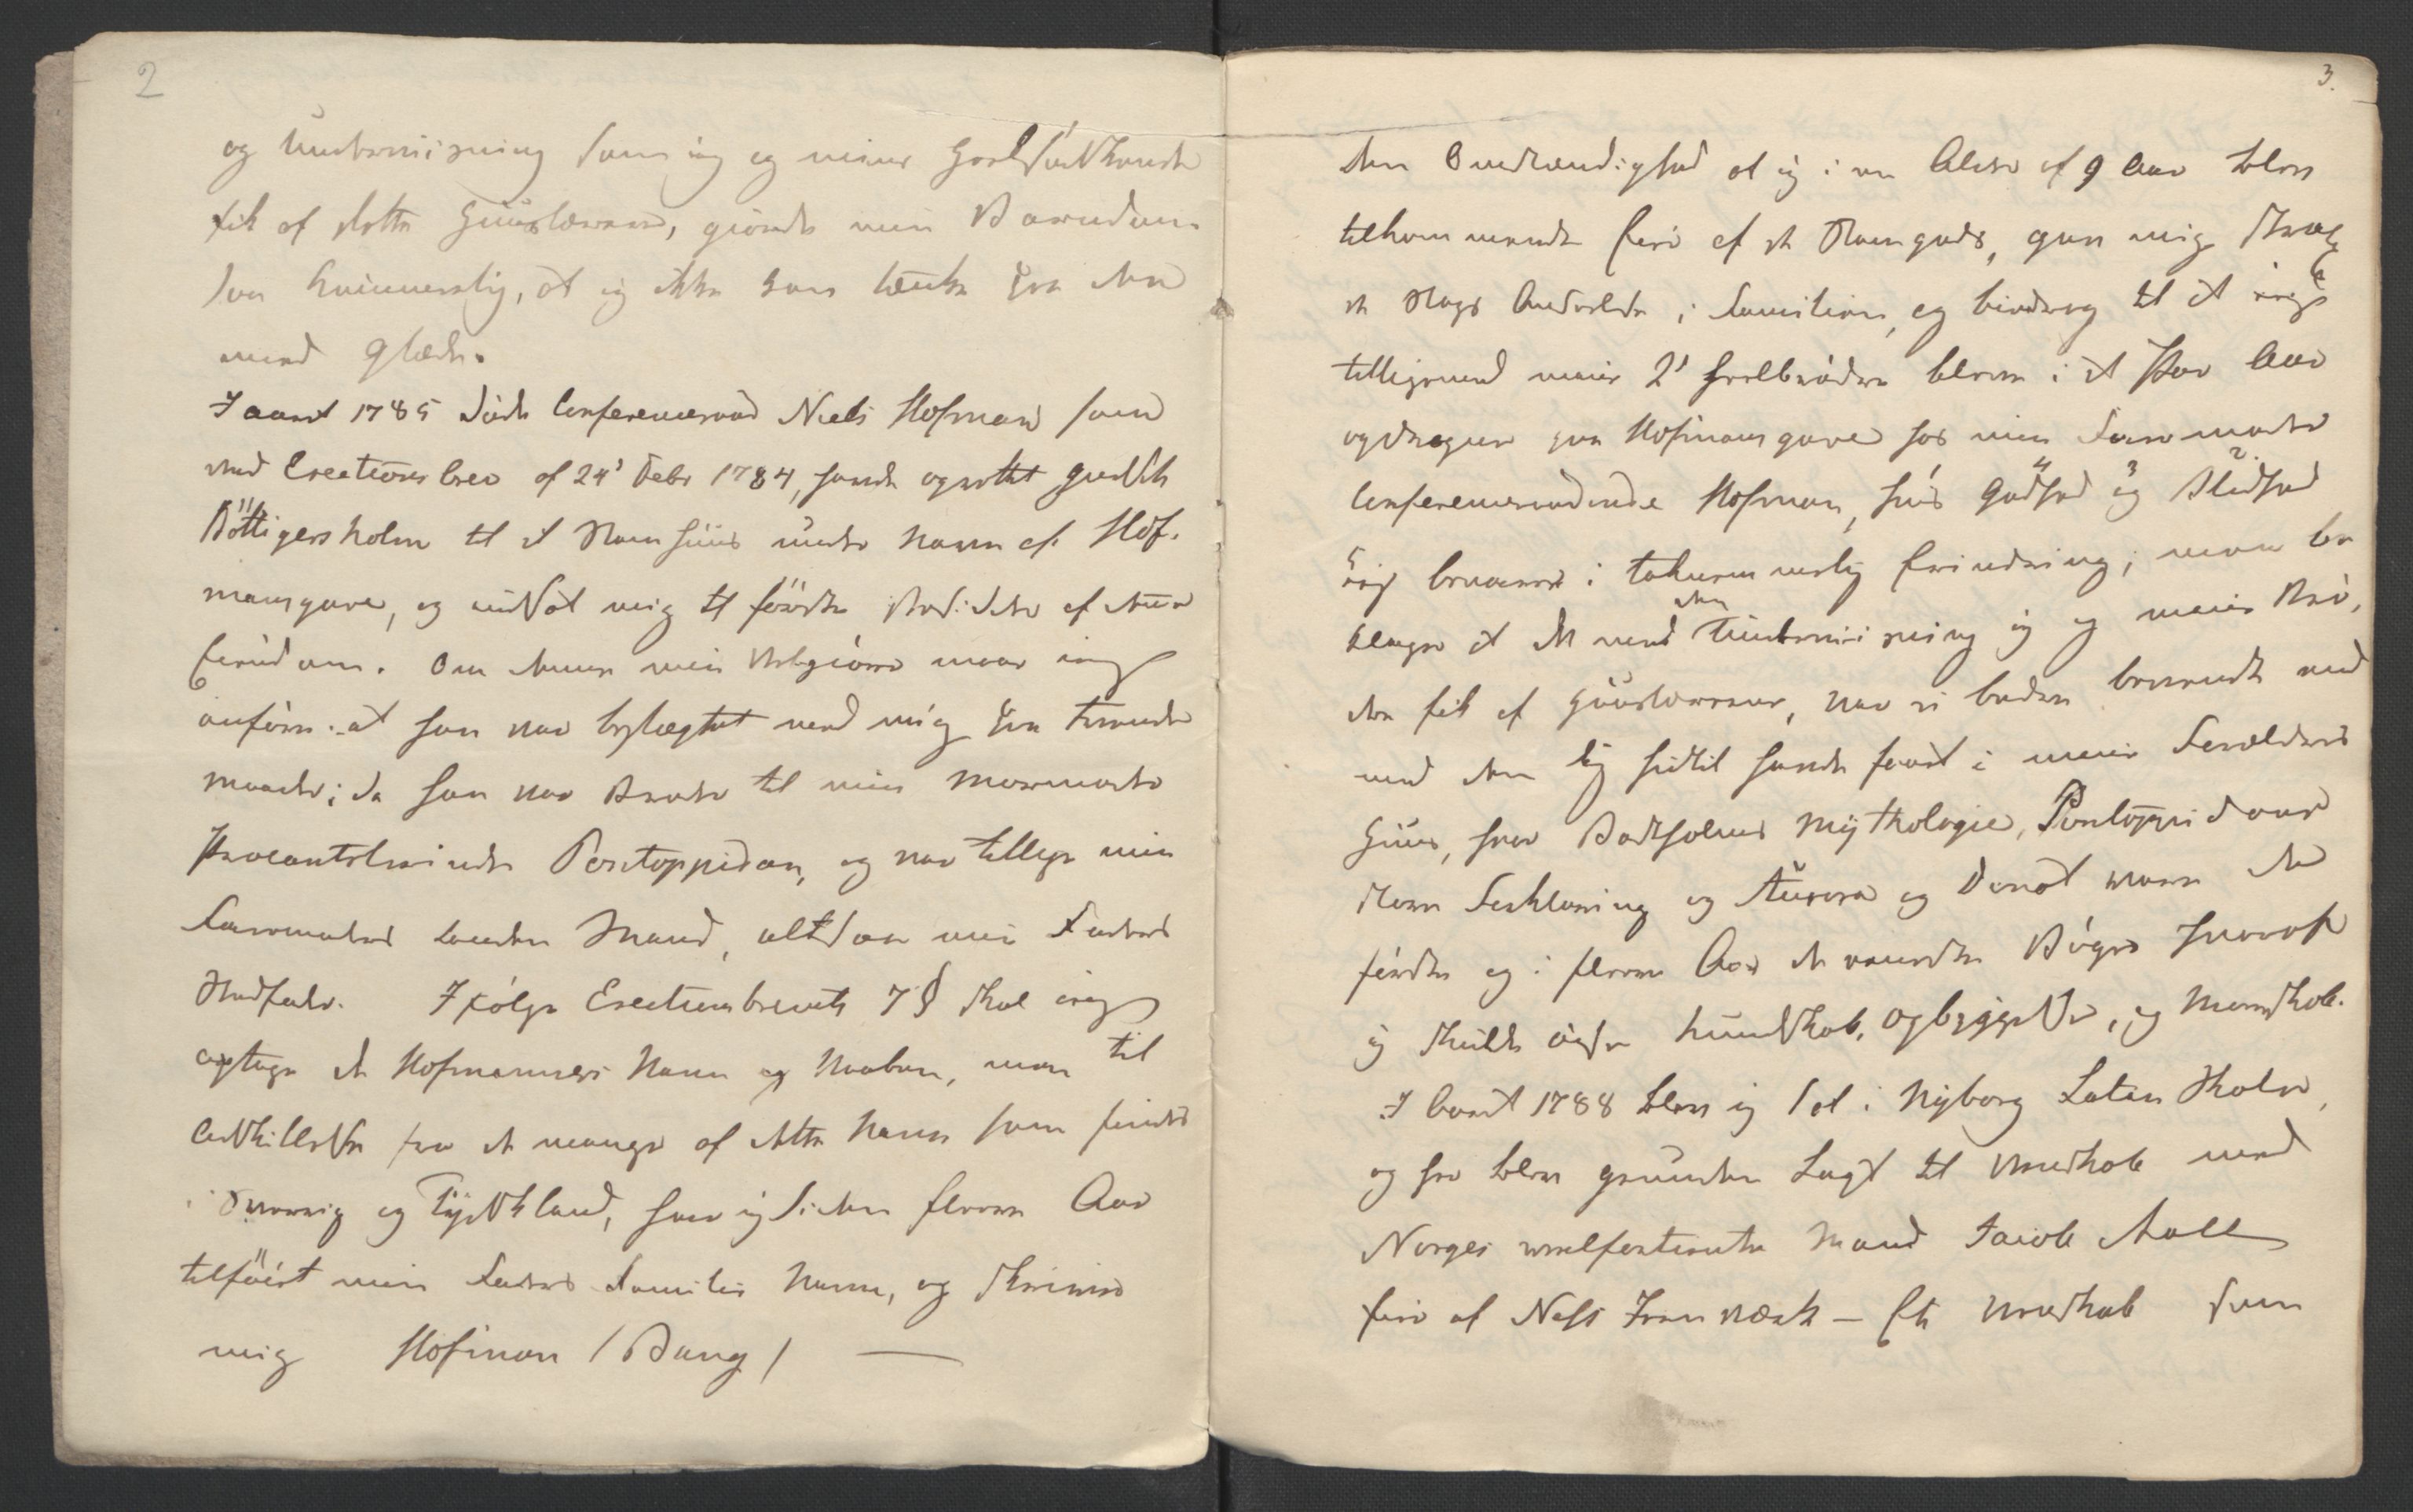 2
og Underviisning som jeg og mine Halvsødskende
fik af dette Huuslærere, giorde min Barndom
saa kummerlig, at jeg ikke kan tænke paa den
med Glæde.
I aaret 1785 døde Conferenceraad Niels Hofman som
ved Erectionsbrev af 24' Febr 1784, havde oprettet Godset
Böttigersholm til et Stamhuus under Navn af Hof-
mansgave, og indsat mig til første Besidder af dette
Eiendom. Om denne min Velgiører maae jeg
anføre: at han var beslægtet med mig paa tvende
Maader; da han var Broder til min Mormoder
Procantslerinde Pontoppidan, og var tillige min
Farmoders anden Mand, altsaa min Faders
Stedfader. Ifølge Erectionsbrevets 7 § skal jeg
optage det Hofmanns Navn og Vaaben, men til
Adskillelse fra de mange af dette Navn som findes
i Sverrig og Tydskland, har jeg siden flere Aar
tilføiet min Faders Familie Navn, og skriver
mig Hofman (Bang) —
3.
Den Omstændighed at jeg i en Alder af 9 Aar blev
tilkommende Eier af et Stamgods, gav mig strax
et slags Anseelse i Familien, og bidrog til at jeg
tilligemed mine 2' Halvbrødre bleve i et Par Aar
opdragne paa Hofmansgave hos min Farmoder
Conferenceraadinde Hofman, hvis Godhed og Blidhed
jeg bevarer i taknemmelig Erindring; men be
klager at det med den Underviisning jeg og mine Brø-
dre fik af Huuslærerne, var ei bedre bevendt end
med den jeg hidtil havde faaet i mine Forældres
Huus, hvor Bastholms Mythologie, Pontoppidans
store Forklaring og Aurora og Donat vare de
første og i flere Aar de eneste Bøger hvoraf
jeg skulde øse Kundskab, Opbyggelse, og Moerskab.
I Aaret 1788 blev jeg sat i Nyborg Latin Skole,
og her blev Grunden Lagt til Venskab med
Norges velfortiente Mand Jacob Aall
Eier af Næss Jernværk — Et Venskab som